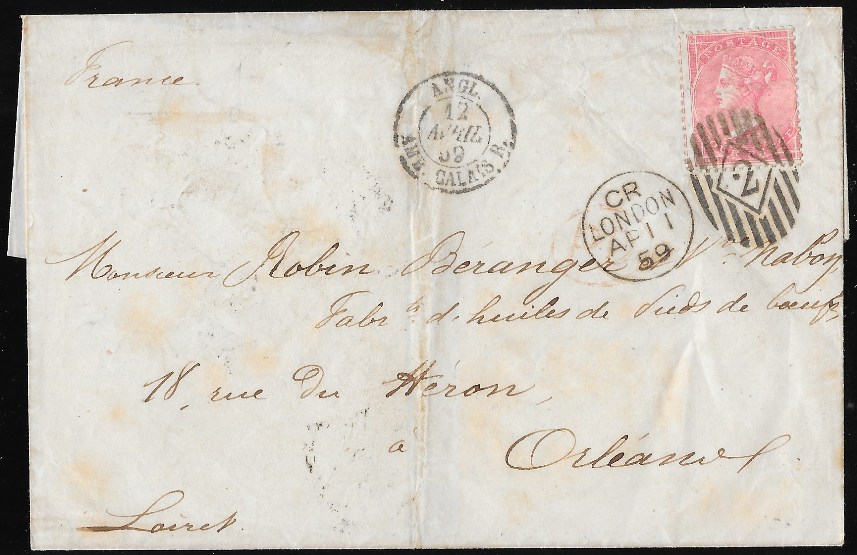 France
POSTAGE
ANGL.
12
AVRIL
59
AMB. CALAIS B.
2
CR
LONDON
AP 11
59
Monsieur Robin Béranger
Fabr d'huiles de Pieds de boeufs
18, rue du Héron,
à
Orléans
Loiret.